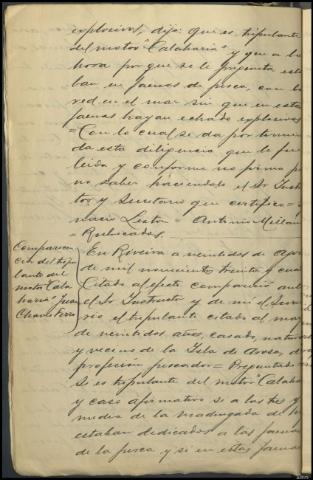 explosivos, dijo: que es tripulante
del motor "Calaharia" y que a la
hora por que se le pregunta esta-
ban en faenas de pesca, con la
red en el mar sin que en estas
faenas hayan echado explosivos
= Con lo cual se da por termina-
da esta diligencia que le fue
leida y conforme no firma por
no saber haciendolo el Sr Instruc-
tor y Secretario que certifico =
= Antonio Milán
= Rubricados.
Comparecen-
cia del tripu-
lante del
motor Cala-
haria Juan
Chaves Ferro
En Riveira a veintidos de
de mil novecientos treinta y cua
Citado al efecto compareció ante
el Sr Instructor y de mi el Secre-
rio el tripulante citado al margen
de veintidos años, casado, natural
y vecino de la Isla de Arosa, de
profesion pescador = Preguntado
Si es tripulante del motor Calaha
y caso afirmativo si a las tres y
media de la madrugada de
estaban dedicados a las faenas
de la pesca y si en estas faenas